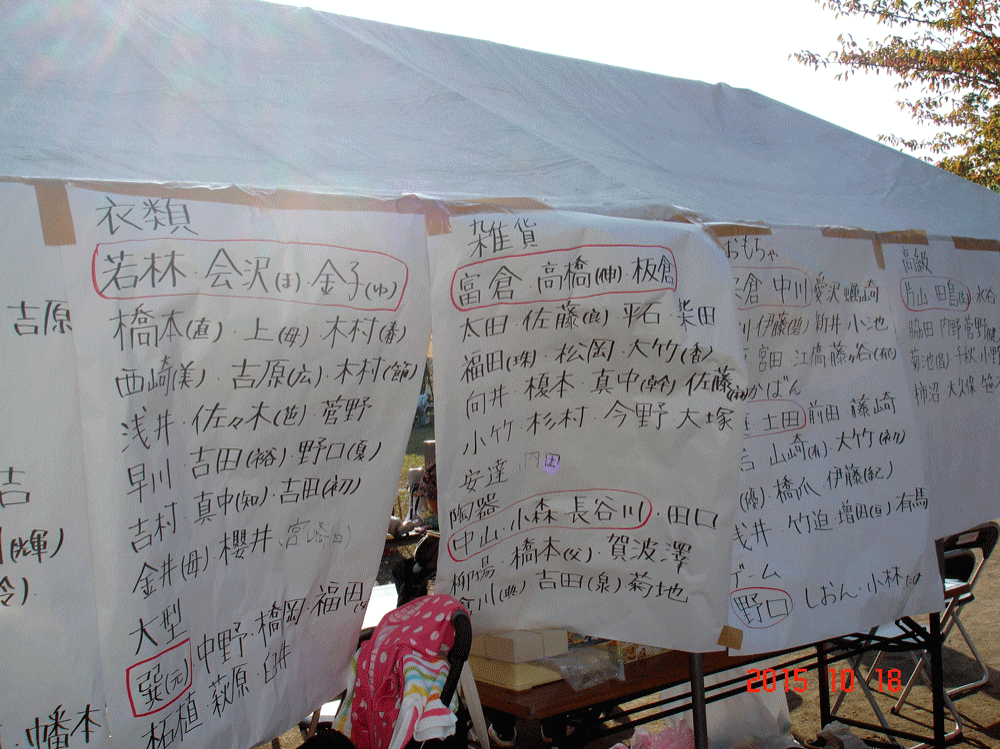 吉原
吉
(輝)
幡本
衣類
若林・会沢(ま)・金子(ゆ)
橋本(直)・上(母)・木村(春)
西崎(美)・吉原(広)・木村(節)
浅井・佐々木(也)・菅野
早川・吉田(裕)・野口(優)
吉村・真中(知)・吉田(初)
金井(母)・櫻井
大型
巽(元)・中野・橋岡・福田
柘植・萩原・臼井
雑貨
富倉・高橋(伸)・板倉
太田・佐藤(良)・平石・柴田
福田(珠)・松岡・大竹(香)
向井・榎本・真中(幹)・佐藤
小竹・杉村・今野・大塚
安達
陶器
中山・小森・長谷川・田口
橋本(父)・賀波澤
吉田(泉)・菊地
おもちゃ
中川 愛沢 蠣崎
伊藤 新井 小池
宮田 江筒 藤ヶ谷
かばん
土田 前田 藤崎
山崎(有) 大竹(初)
(優)・橋爪 伊藤(紀)
浅井・竹迫・増田 有馬
ゲーム
野口 しおん・小林
高級
片山・田島 水谷
脇田 内野 菅野
菊池 千代 小野
柿沼 大久保
2015 10 18